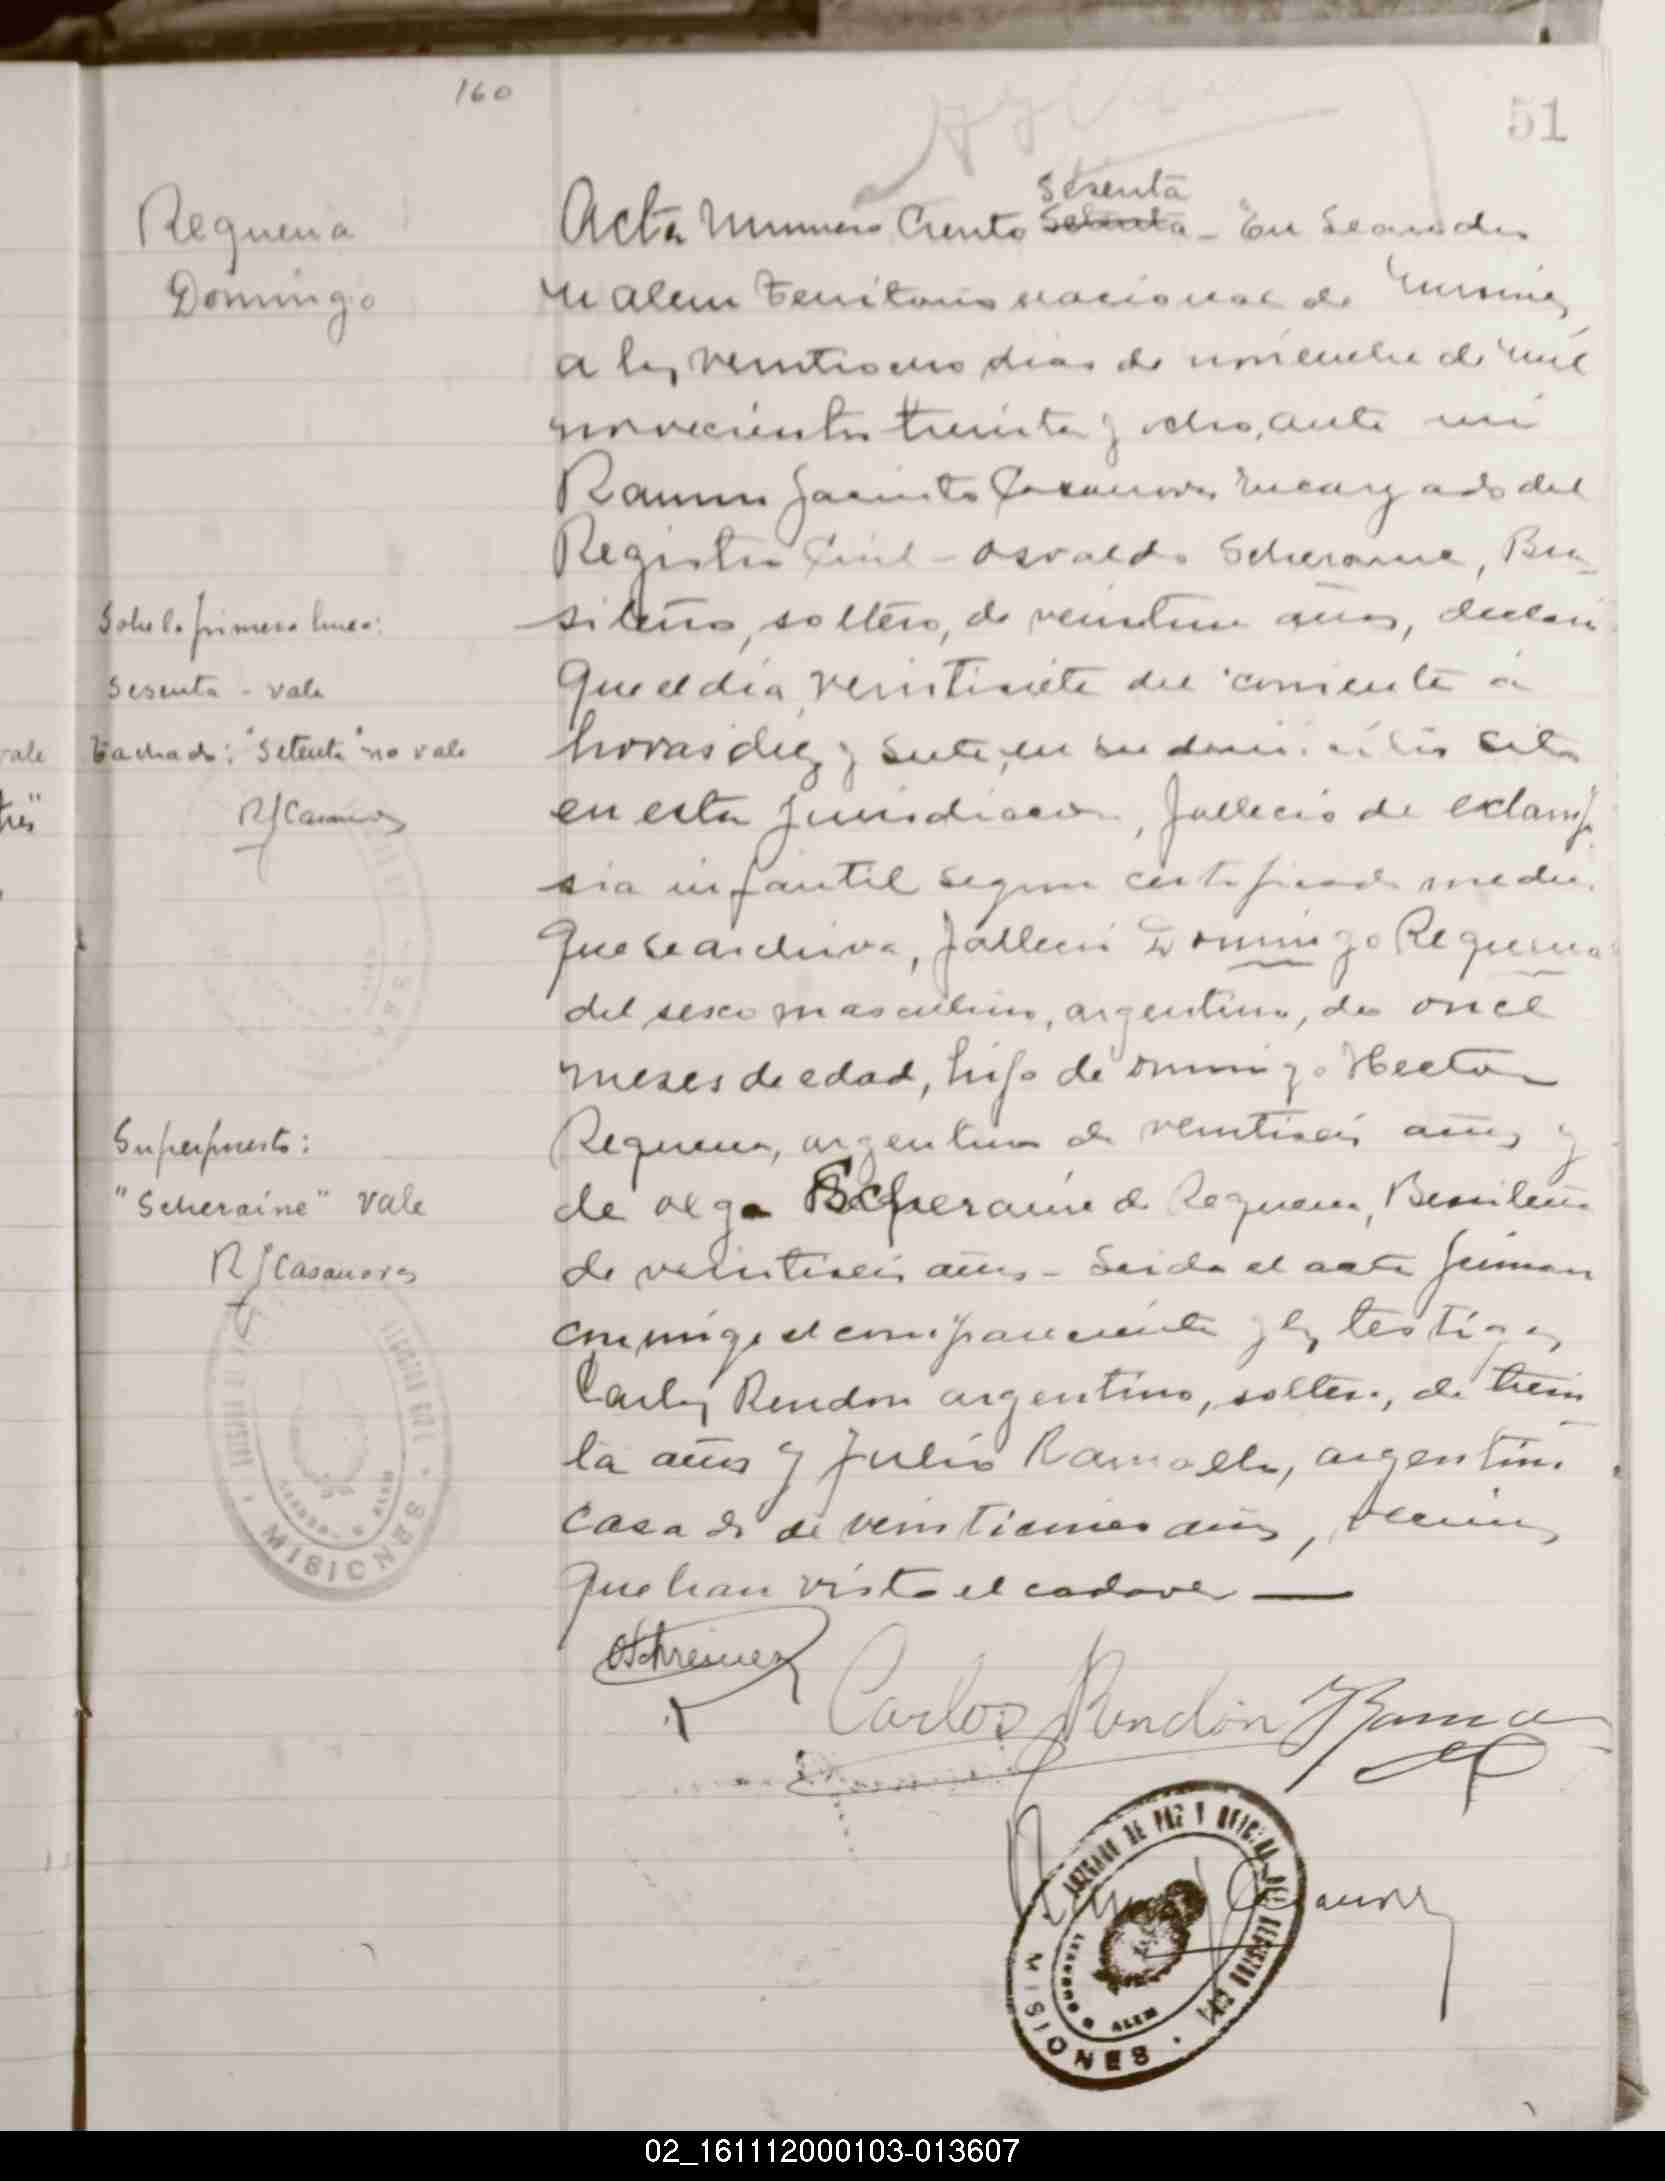 160
51
Requena
Domingo
Sesenta
Acta Numero Ciento Setenta - En Leandro
N Alem Territorio nacional de Misiones
a los veintiocho dias de noviembre de mil
novecientos treinta y ocho, ante mi
Ramon Jacinto Casanova Encargado del
Registro Civil - Osvaldo Scheraine, Bra
sileño, soltero, de veintiun años, declaró
Que el dia veintisiete del corriente á
horas diez y siete, en su domicilio sito
en esta jurisdiccion, fallecio de eclamp
sia infantil segun certificado medico
Que se archiva, fallecio Domingo Requena
del sexo masculino, argentino, de once
meses de edad, hijo de Domingo Hector
Requena, argentino de veintiseis años y
de Olga Scheraine de Requena, Brasileña
de veintiseis años - Leida el acta firman
conmigo el compareciente y los testigos
Carlos Rendon argentino, soltero, de trein
ta años y Julio argentino
casado de veinticinco años, vecinos
Que han visto el cadaver
Sobre la primera linea:
Sesenta - vale
Tachado: "Setenta" no vale
RJCasanova
Superpuesto:
"Scheraine" vale
RJCasanova
MISIONES
vale
tres"
Carlos Rendón
JUZGADO DE PAZ Y OFICINA DEL REGISTRO CIVIL
LEANDRO N ALEM
MISIONES
02_161112000103-013607